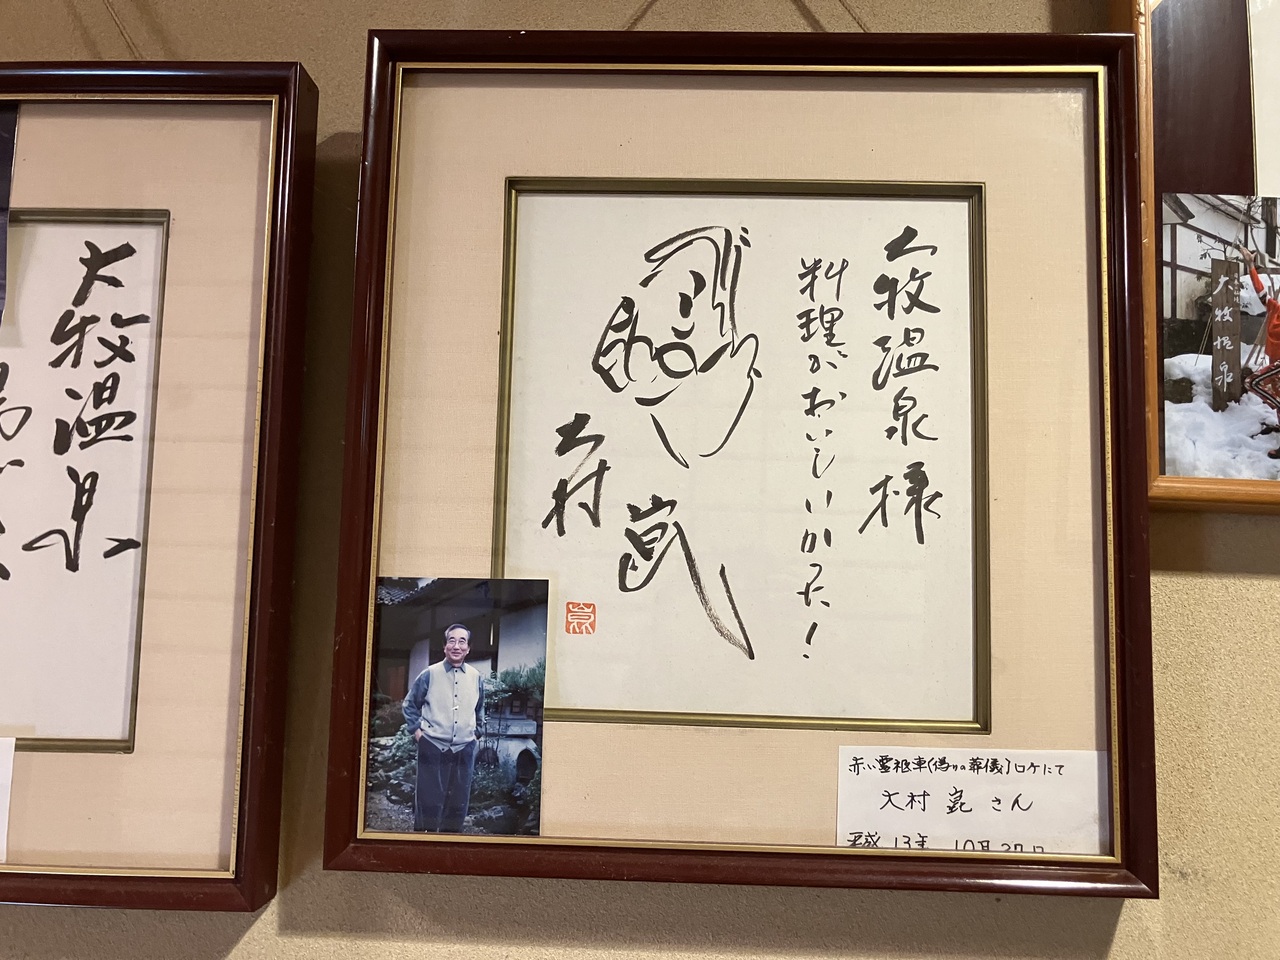 大牧温泉
大牧温泉様
料理がおいしいかった!
大村崑
崑
赤い霊柩車(偽りの葬儀)ロケにて
大村 崑 さん
平成 13年 10月 27日
大牧温泉